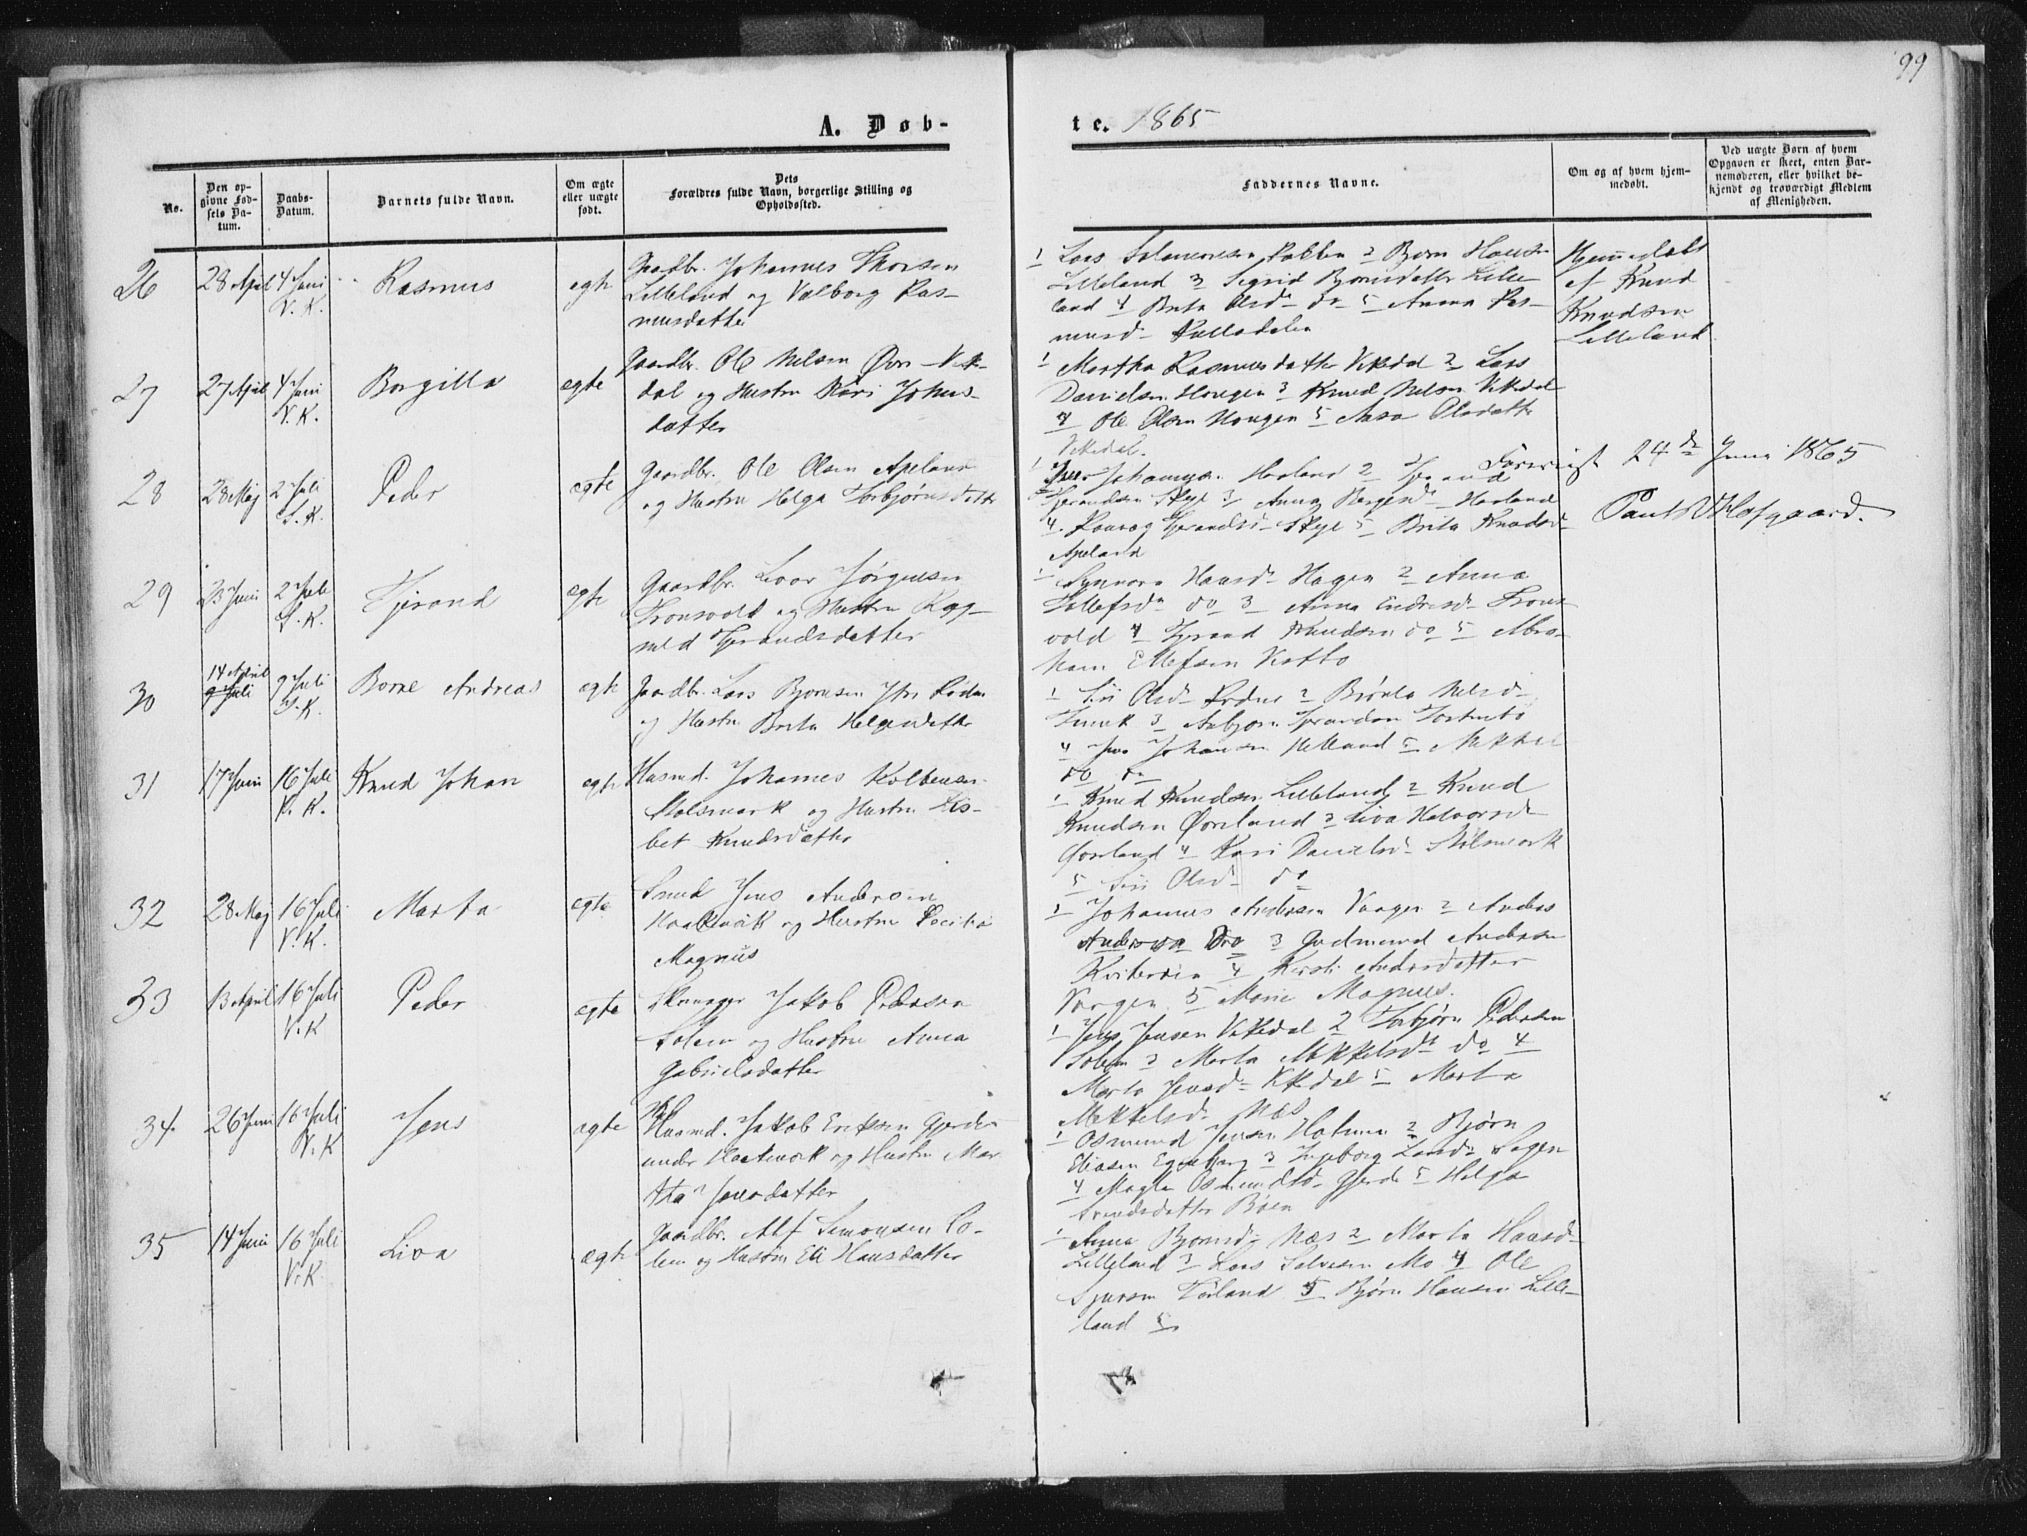 99
A. Døb-
te. 1865
No.
Den op-
givne Fød-
sels Da-
tum.
Daabs-
Datum.
Barnets fulde Navn.
Om ægte
eller uægte
født.
Dets
Forældres fulde Navn, borgerlige Stilling og
Opholdssted.
Faddernes Navne.
Om og af hvem hjem-
medøbt.
Ved uægte Børn af hvem
Opgaven er skeet, enten Bar-
nemoderen, eller hvilket be-
kjendt og troværdigt Medlem
af Menigheden.
26
28 April
4 Juni
V. K.
Rasmus
ægte
Gaardbr. Johannes Thorsen
Lilleland og Valborg Ras-
musdatter
1 Lars Salamonsen 2 Bjørn Hansen
Lilleland 3 Sigrid Bjørnsdatter Lille-
land 4 Brita Olsd. do 5 Anna Ras-
musd.
Hjemmedøbt
af Knud
Knudsen
Lilleland
27
27 April
4 Juni
V. K.
Borgilla
ægte
Gaardbr. Ole Nelsen Øvre-Vik-
dal og Hustru Kari Johns-
datter
1 Martha Rasmusdatter Vikedal 2 Lars
Danielsen Hougen 3 Knud Nelsen Vikedal
4 Ole Olsen Hougen 5 Aasa Olsdatter
Vikedal.
28
28 Maj
2 Juli
S. K.
Peder
ægte
Gaardbr. Ole Olsen Apeland
og Hustru Helga Torbjørnsdatter
1 Iver Johannesen Harland 2 Tjerand
Tjerandsen Skeje 3 Anna Harland
4 Tjerandsd. Skeje 5 Brita Knudsd.
Apeland
24de Juni 1865
Hofgaard.
29
23 Juni
2 Juli
S. K.
Tjerand
ægte
Gaardbr. Loar Jørgensen
Fronsvold og Hustru Rag-
nild Tjerandsdatter
1 Synnora Hansd. Hagen 2 Anna
Tollefsd. do 3 Anna Endresd. Frons-
vold 4 Tjerand Knudsen do 5 Abra-
ham Ellefsen
30
14 April
9 Juli
9 Juli
S. K.
Borne Andreas
ægte
Gaardbr. Lars Bjørnsen
og Hustru Brita Helgesdatter
1 Siri Olsd. 2 Nelsd.
3 Asbjørn Tjerandsen
4 Johansen Helland 5 Mikkel
do do
31
17 Juni
16 Juli
V. K.
Knud Johan
ægte
Husmd. Johannes Kolbensen
Stølsmark og Hustru Lis-
bet Knudsdatter
1 Knud Knudsen Lilleland 2 Knud
Knudsen Øreland 3 Liva Halvorsd.
Øreland 4 Kari Danielsd. Stølsmark
5 Siri Olsd. do
32
28 Maj
16 Juli
V. K.
Marta
ægte
Smed Jens Andersen
og Hustru Cecilia
Magnus
1 Johannes Andersen Vaagen 2 Anders
Andersen Do 3 Gudmund Andersen
4 Kirsti Andersdatter
Vaagen 5 Marie Magnus.
33
13 April
16 Juli
V. K
Peder
ægte
Jakob Pedersen
Solem og Hustru Anna
Gabrielsdatter
1 Jens Jensen Vikedal 2 Torbjørn Pedersen
Solem 3 Marta Mikkelsd. do 4
Marta Jensd. Vikedal 5 Marta
Mikkelsd. Næs
34.
26 Juni
16 Juli
V. K
Jens
ægte
Husmd. Jakob Eriksen Gjerde
under og Hustru Mar-
tha Jensdatter
1 Osmund Jensen 2 Bjørn
Eliasen 3 Ingeborg Larsd.
4 Magla Osmundsd. Gjerde 5 Helga
Bøen
35
14 Juni
16 Juli
V. K.
Liva
ægte
Gaardbr. Alf Simonsen So-
lem og Hustru Eli Hansdatter
1 Anna Bjørnsd. Næs 2 Marta Hansd.
Lilleland 3 Lars Mo 4 Ole
Sjursen 5 Bjørn Hansen Lille-
land 5